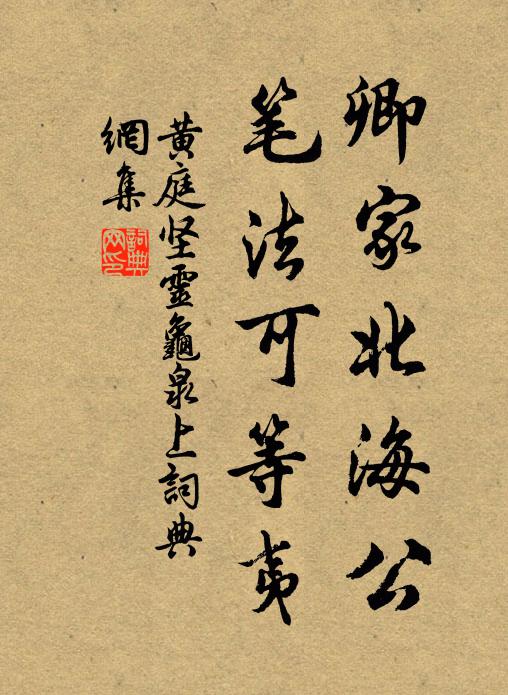 卿家北海公
笔法可等夷
黄庭坚靈龜泉上詞典
網集
詞典網印